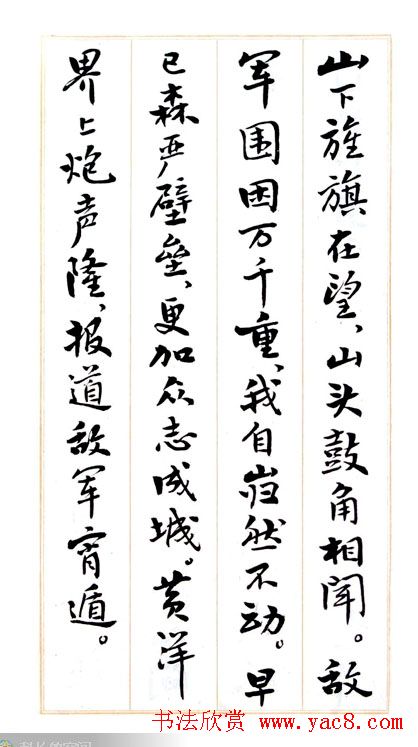 山下旌旗在望、山头鼓角相闻。敌
军围困万千重、我自岿然不动。早
已森严壁垒、更加众志成城。黄洋
界上炮声隆、报道敌军宵遁。
书法欣赏 www.yac8.com